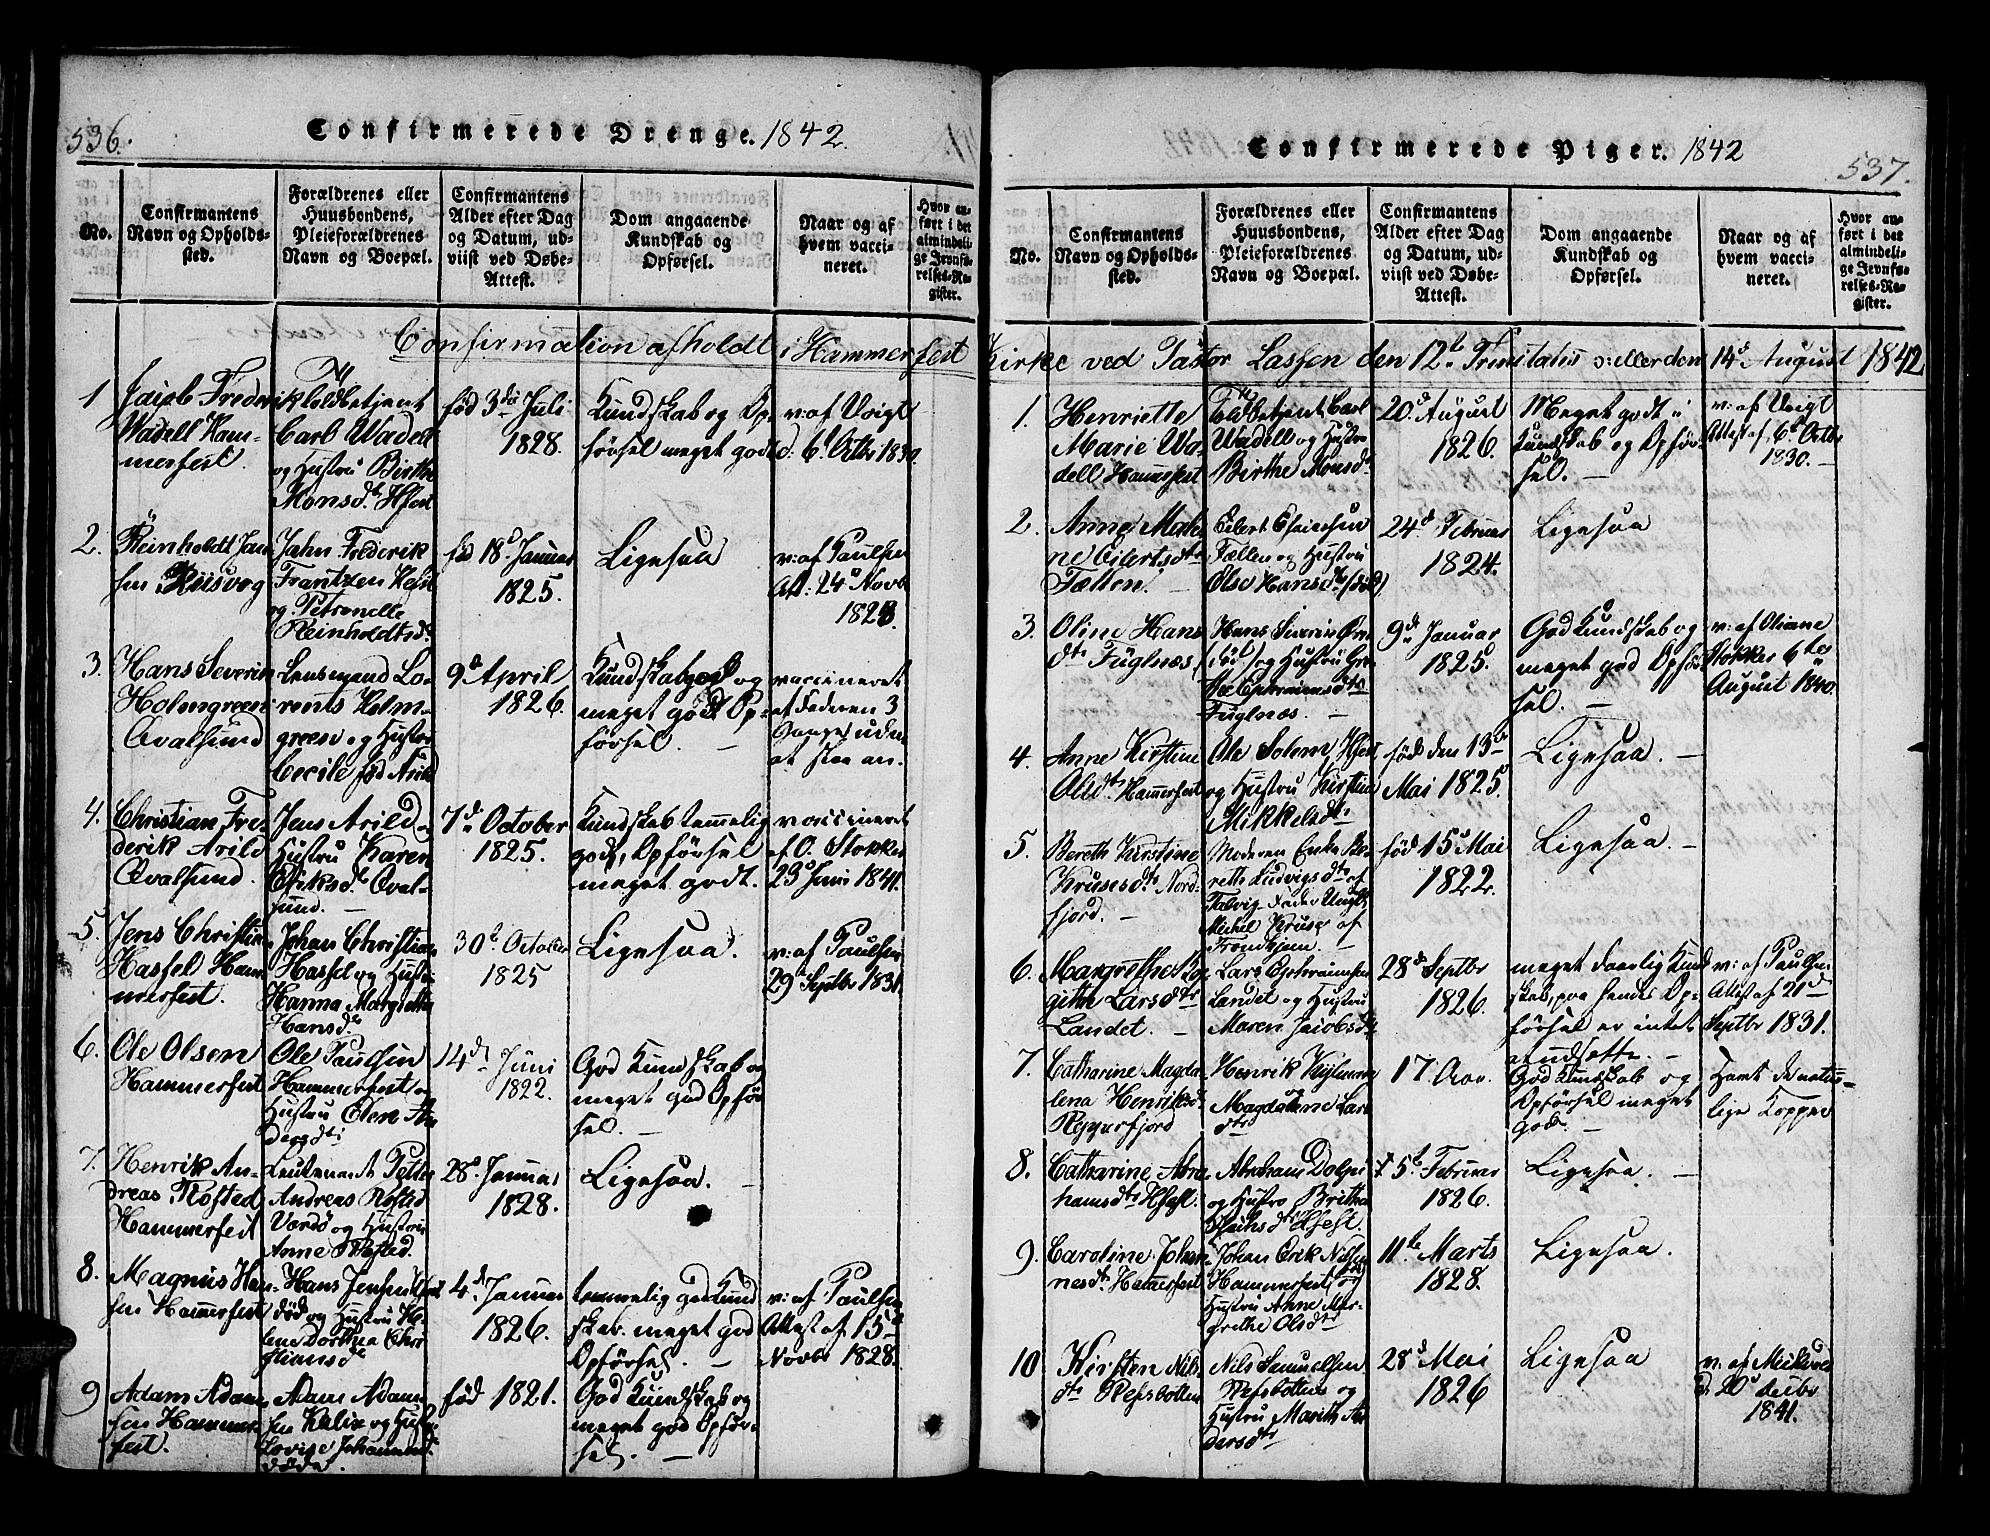 536.
Confirmerede Drenge. 1842.
No.
Confirmantens
Navn og Opholds-
sted.
Forældrenes eller
Huusbondens,
Pleieforældrenes
Navn og Boepæl.
Confirmantens
Alder efter Dag
og Datum, ud-
viist ved Døbe-
Attest.
Dom angaaende
Kundskab og
Opførsel.
Naar og af
hvem vacci-
neret.
Hvor an-
ført i det
almindeli-
ge Jevnfø-
relses-Re-
gister.
Confirmation afholdt i Hammerfest
1
Jacob Frederik
Wadell Ham-
merfest.
Toldbetjent
Carl Wadell
og Hustru Birthe
Monsd. Hfest
født 3die Juli
1828.
Kundskab og Op-
førsel meget godt
v: af Voigt
d: 6. Octbr 1830.
2.
Reinholdt Jan-
sen Riisvog
Jahn Frederik
Frantzen Hfest
og Petronelle
Reinholdtsd.
fød 18d Januar
1825.
Ligesaa
v: af Paulsen
Att: 24d Novb
1828.
3.
Hans Severin
Holmgreen
Qvalsund
Lensmand Lo-
rents Holm-
green og Hustru
Cecilie fød Arild
9d April
1826.
Kundskab god og
meget godt Op-
førsel. —
vaccineret
af Faderen 3
Gange uden
at slaa an.
4.
Christian Fre-
derik Arild
Qvalsund.
Jens Arild og
Hustru Karen
Eriksd. Qval-
sund. —
7d October
1825.
Kundskab temmelig
godt, Opførsel
meget godt.
vaccineret
af O. Stokker
23d Juni 1841.
5.
Jens Christian
Hassel Ham-
merfest.
Johan Christian
Hassel og Hustru
Hanna Margrethe
Hansd.
30t October
1825
Ligesaa.
v: af Paulsen
29 Septbr 1831.
6.
Ole Olsen
Hammerfest
Ole Paulsen
Hammerfest og
Hustru Elen An-
dersd.
14d Juni
1822.
God Kundskab og
meget god Opfør-
sel. —
7.
Henrik An-
dreas Rosted
Hammerfest
Leutenant Petter
Andreas Rosted
Vardø og Hustru
Anne Rosted.
28d Januar
1828.
Ligesaa. —
8.
Magnus Han-
sen Hammerfest
Hans Jensen
død og Hustru He-
lene Dorthea Chri-
stiansd.
4d Januar
1826.
temmelig god Kund
skab. meget god
Opførsel. —
v: af Paulsen
Attest af 15d
Novbr 1828.
9
Adam Adam-
sen Hammer-
fest.
Adam Adam-
sen Kalix og Hustru
Lovise Johannesd.
døde.
fød 1821.
God Kundskab og
meget god Opfør-
sel. —
Confirmerede Piger. 1842
537.
No.
Confirmantens
Navn og Opholds-
sted.
Forældrenes eller
Huusbondens,
Pleieforældrenes
Navn og Boepæl.
Confirmantens
Alder efter Dag
og Datum, ud-
viist ved Døbe-
Attest.
Dom angaaende
Kundskab og
Opførsel.
Naar og af
hvem vacci-
neret.
Hvor an-
ført i det
almindeli-
ge Jevnfø-
relses-Re-
gister.
Kirke ved Pastor Lassen den 12te Trinitatis o: eller den 14d August 1842
1.
Henriette
Marie Wa-
dell Hammfest
Toldbetjent Carl
Wadell og Hustru
Birthe Monsd.
20d August
1826.
Meget godt i
Kundskab og Opfør-
sel. —
v: af Voigt
Attest af, 6d Octbr
1830. —
2.
Anne Mali-
ne Eilertsdtr
Fællen
Eilert
Fællen og Hustru
Else Hansd. (død)
24d Februar
1824.
Ligesaa
3.
Oline Hans
dtr Fuglnæs
Hans Siverin
(død) og Hustru Gre-
the Ephraimsdtr
Fuglnæs. —
9de Januar
1825.
God Kundskab og
meget god Opfør-
sel. —
v: af Oliane
Stokker 6te
August 1840.
4.
Anne Kirstine
Olsdtr Hammerfest
Ole Solem Hfest
og Hustru Kirstine
Mikkelsdtr
født den 13de
Mai 1825.
Ligesaa. —
5.
Bereth Kirstine
Krusesdtr Nord-
fjord. —
Moderen Enke Be-
reth Ludvigsdtr af
Talvig Fader Ungk.
Michel Kruse af
Trondhjem. —
fød 15d Mai
1822.
Ligesaa. —
6.
Margrethe Bir-
gitte Larsdtr
Landet. —
Lars Ephraimsen
Landet og Hustru
Maren Jacobsdtr
28d Septbr
1826.
meget daarlig Kund
skab, paa hendes Op-
førsel er intet
at udsætte. —
v: af Paulsen
Attest af 21d
Septbr 1831.
7.
Catharine Magda-
lena Henriksd.
Repperfjord
Henrik
og
Magdalene Lars
dtr
17. Nov.
God Kundskab og
Opførsel meget
god. —
Havt de natur-
lige Kopper
8.
Catharine Abra
hamsdtr Hfest.
Abraham Dolpi
og Hustru Britha
Isachsdtr Hfest.
f 5t Februar
1826.
Ligesaa. —
9.
Caroline Johan-
nesdtr Hammerfest
Johan Erik Nilsen
Hammerfest og
Hustru Anne Mar-
grethe Olsdtr
11te Marts
1828.
Ligesaa.
10
Kirsten Nils-
dtr Refsbotten
Nils Samuelsen
Refsbotten og
Hustru Marith An-
dersdtr
28d Mai
1826
Ligesaa
v: af
d: 20d
1841.